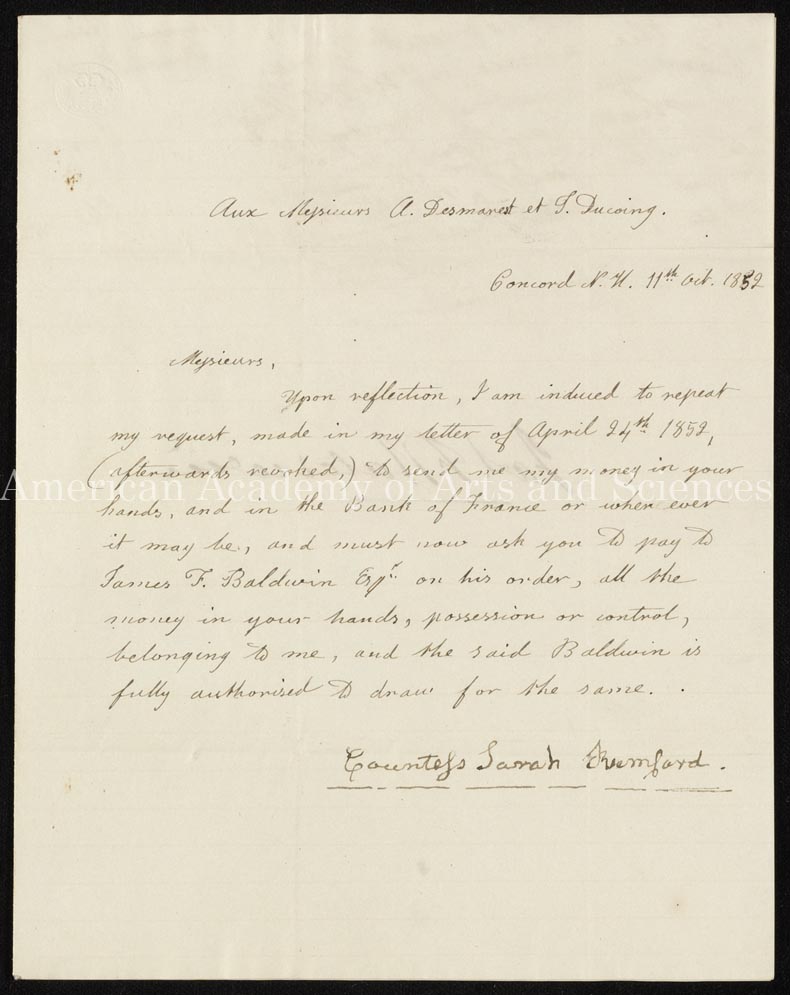 Aux Messieurs A. Desmarest et S. Ducoing.
Concord N. H. 11th Oct. 1852
Messieurs,
Upon reflection, I am induced to repeat
my request, made in my letter of April 24th 1852,
(afterwards revoked,) to send me my money in your
American Academy of Arts and Sciences
hands, and in the Bank of France or where ever
it may be, and must now ask you to pay to
James F. Baldwin Esqr. on his order, all the
money in your hands, possession or control,
belonging to me, and the said Baldwin is
fully authorised to draw for the same.
Countess Sarah Rumford.